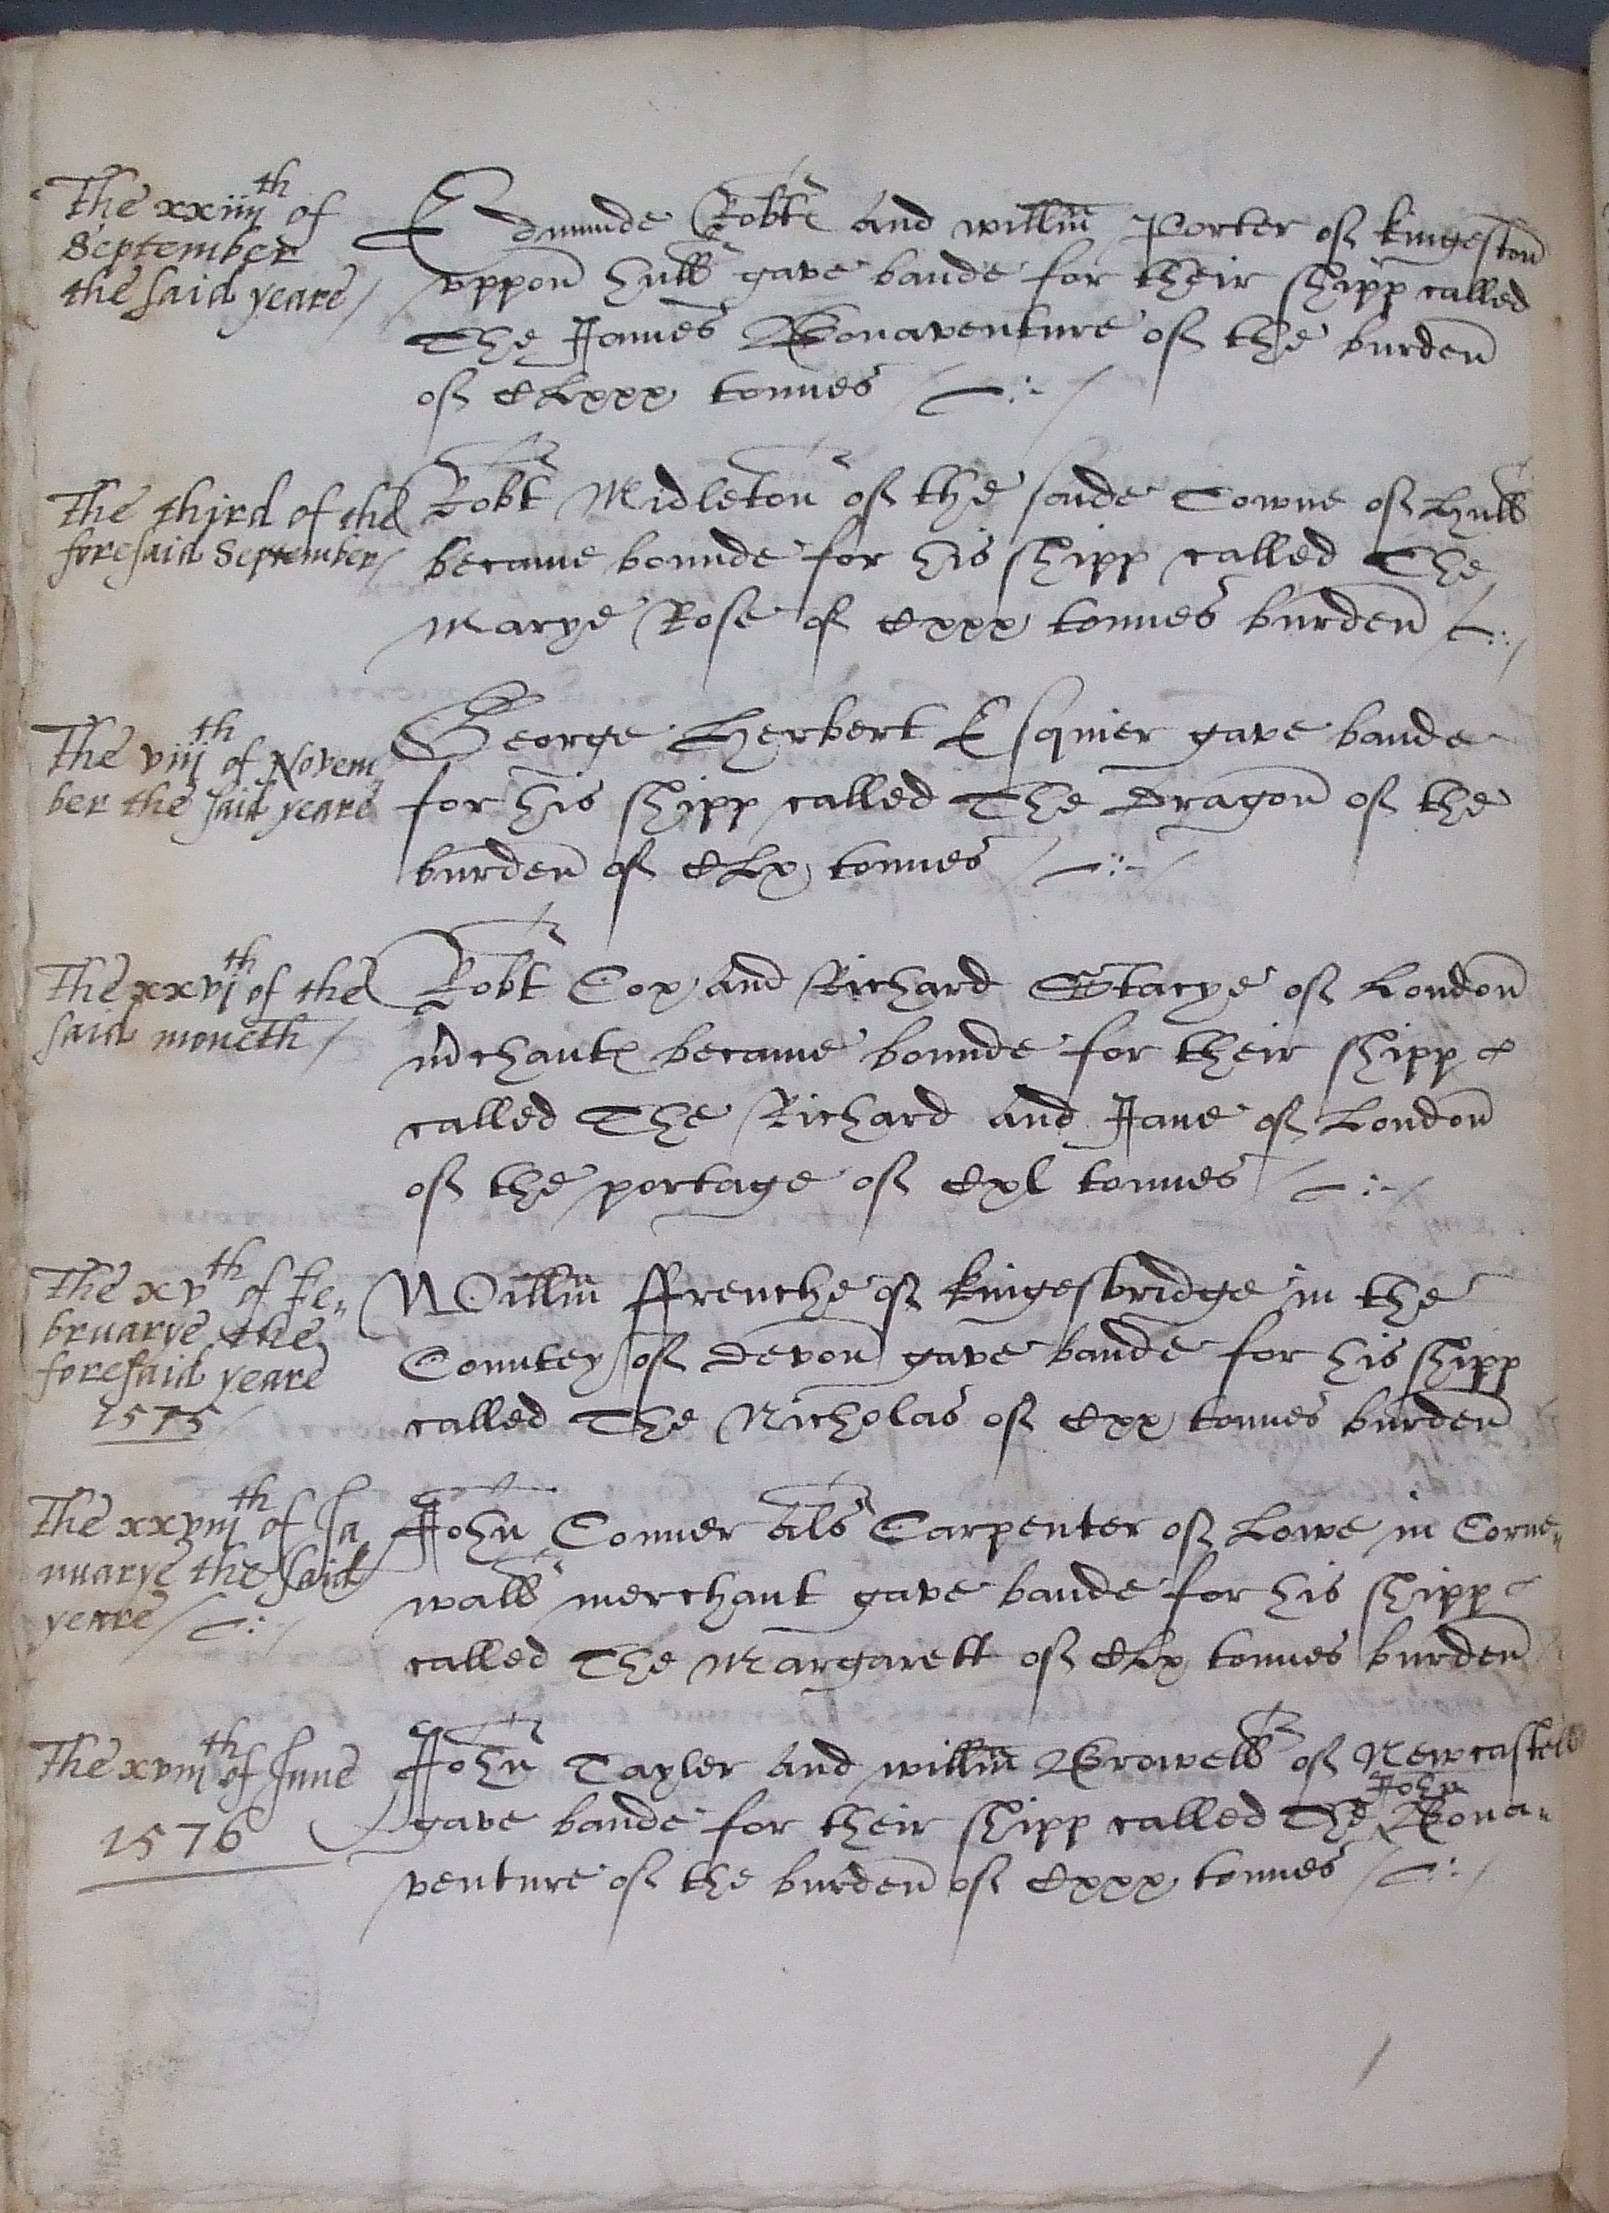 The xxiiij th of
September
the said yeare /
Edmunde Robt͛ and willm̄ Porter of kingeston
vppon hull gave bande for their shipp called
The James Bonaventure of the burden
of CLxxx tonnes
The third of the
foresaid September /
Robt Midleton of the saide Towne of Hull
became bounde for his shipp called The
Marye Rose of Cxxx tonnes burden
The viij th of Novem„
ber the said yeare
George Herbert Esquier gave bande
for his shipp called The Dragon of the
burden of CLx tonnes
The xxvj th of the
said moneth /
Robt Cox and Richard Stacye of London
m̄chantꝭ became bounde for their shipp
called The Richard and Jane of London
of the portage of Cxl tonnes
The xv th of Fe„
bruarye the
foresaid yeare
1575
Willm̄ ffrenche of kingesbridge in the
Countey of Devon gave bande for his shipp
called The Nicholas of Cxx tonnes burden
The xxviij th of Ja
nuarye the said
yeare /
John Conner als Carpenter of Lowe in Corne„
wall merchant gave bande for his shipp
called The Margarett of CLx tonnes burden
The xviij th of June
1576
John Tayler and willm̄ Browell of Newcastell
gave bande for their shipp called The John Bona„
venture of the burden of Cxxx tonnes